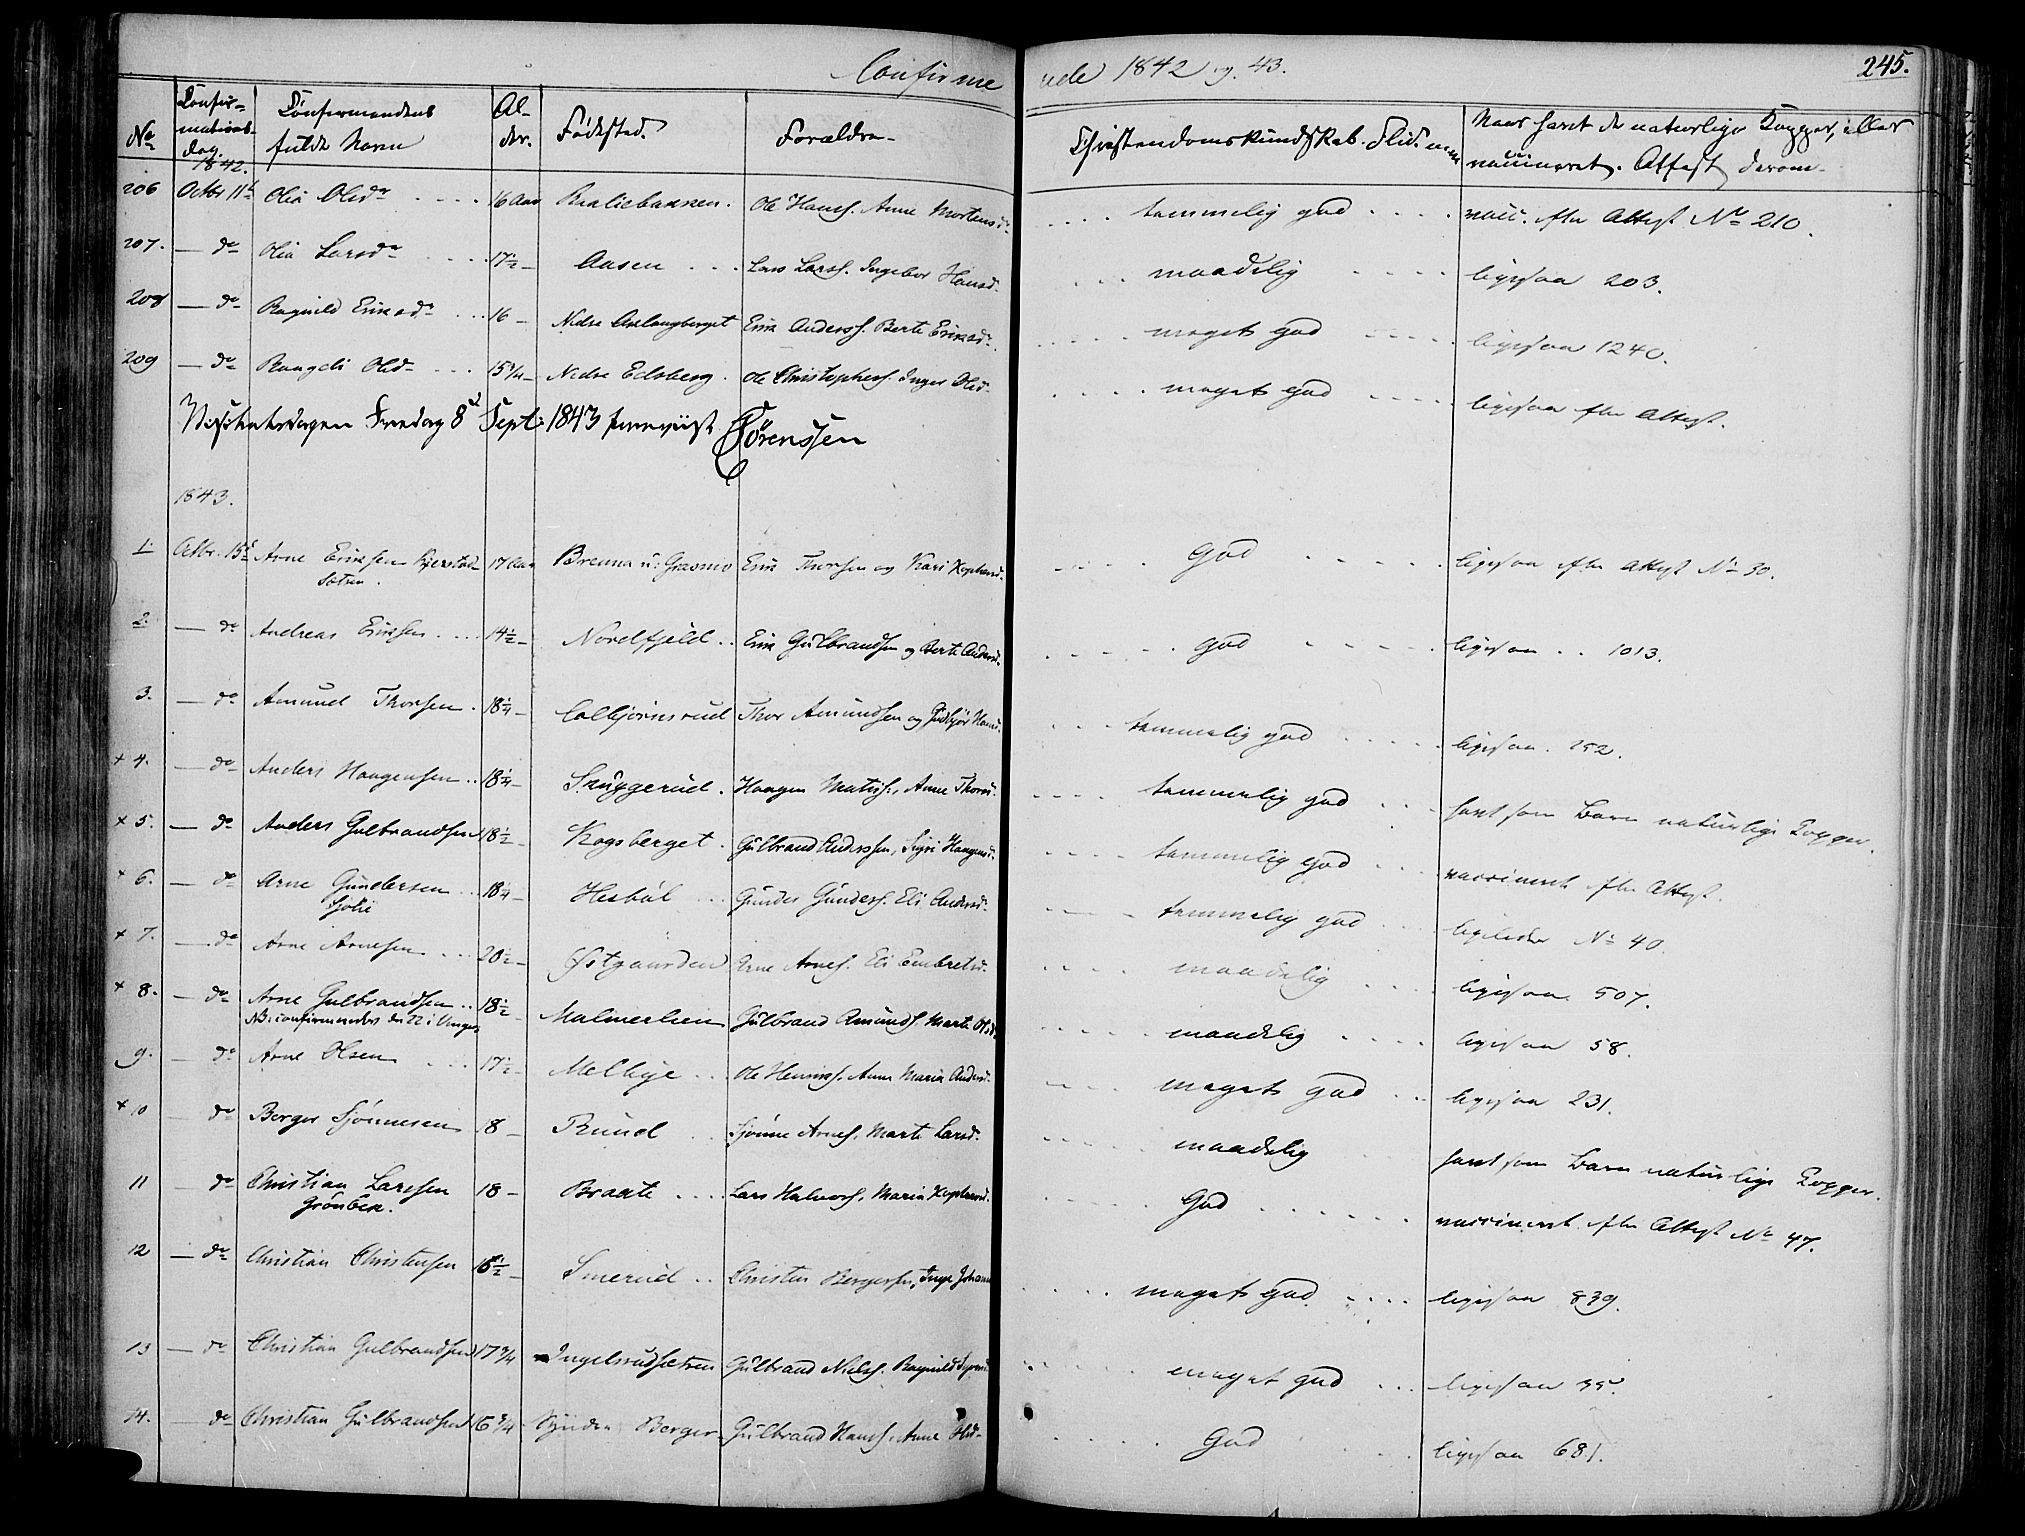 Confirmerede 1842 og 43. 245.
No Confirmations Dag. Confirmandens fulde Navn Alder. Fødested. Forældre Christendomskundskab. Flid. Naar havt de naturlige Kopper, eller vaccineret. Attest derom
1842.
206 Octbr 11te Olia Olsdr 16 Aar Baaliebakken. Ole Hanss. Anne Mortensd. temmelig god vacc. efter Attest No 210.
207. do Olia Larsdr 17½ Aasen Lars Larss. Ingebor Hansd. maadelig ligesaa 203.
208 do Ragnild Eriksdr 16 Nedre Anlaugberget Erik Anderss. Berte Eriksdr. meget god ligesaa 1240.
209 do Rangdi Olsd 15¾ Nedre Edsberg. Ole Christophers. Inger Olsd. meget god ligesaa efter Attest.
Visitatsdagen Fredag 8d Septr 1843 Sørenssen
1843.
1. Octbr. 15d Arne Eriksen 17 Aar Brenna u: Grasmo Erik Thorsen og Kari god ligesaa efter Attest No 30.
2. do Andreas Eriksen 14½ Nordfjeld Erik Gulbrandsen og Berte Andersd. god ligesaa 1013.
3. do Amund Thorsen 18¼ Colbjørnsrud Thor Amundsen og Gudbjør Hansd. temmelig god ligesaa 252.
+ 4. do Anders Haagensen 18¼ Skuggerud. Haagen Matiss., Anne Thorsd. temmelig god havt som Barn naturlige Kopper.
+ 5. do Anders Gulbrandsen 18½ Kogsberget. Gulbrand Anderssen, Sigri Haagensd. temmelig god vaccineret efter Attest.
+ 6. do Arne Gundersen 18¼ Hesbøl Gunder Gunders. Eli Andersd. temmelig god ligeledes No 40
Sjølie
+ 7. do Arne Arnesen 20½ Østgaarden Arne Arnes. Eli Embretsd. maadelig ligesaa 507.
+ 8. do Arne Gulbrandsen 18½ Malmerlien Gulbrand Amunds. Marte Olsd. maadelig ligesaa 58.
NB: confirmeredes den 22 i
9. do Arne Olsen 17½ Melbye Ole Henriks. Anne Maria Andersd. meget god ligesaa 231.
+ 10 do Berger Sjønnesen 18 Ruud Sjønne Arnes. Marte Larsd. maadelig havt som Barn naturlige Kopper.
11 do Christian Larssen 18 Braate Lars Halvors. Maria God vaccineret efter Attest No 47.
Grønbek.
12 do Christian Christensen 16½ Smerud Christen Bergersen, Inge Johann meget god ligesaa 839.
13 do Christian Gulbrandsen 17¾ Ingelsrudsætren Gulbrand Niels. Ragnild meget god ligesaa 35.
14. do Christian Gulbrandsen 16¾ Berger Gulbrand Hans. Anne Olsd God ligesaa 681.